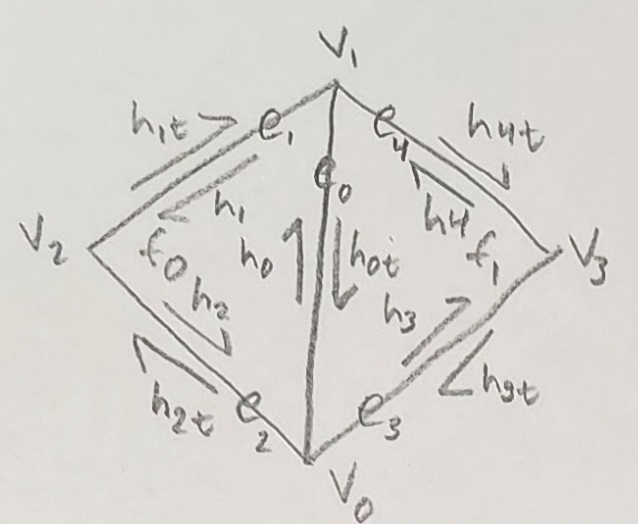 V1
h1t e1 e4 h4t
e0
h1 h4
V2 f0 h0 h0t f1 V3
h2 h3
h2t e2 e3 h3t
V0